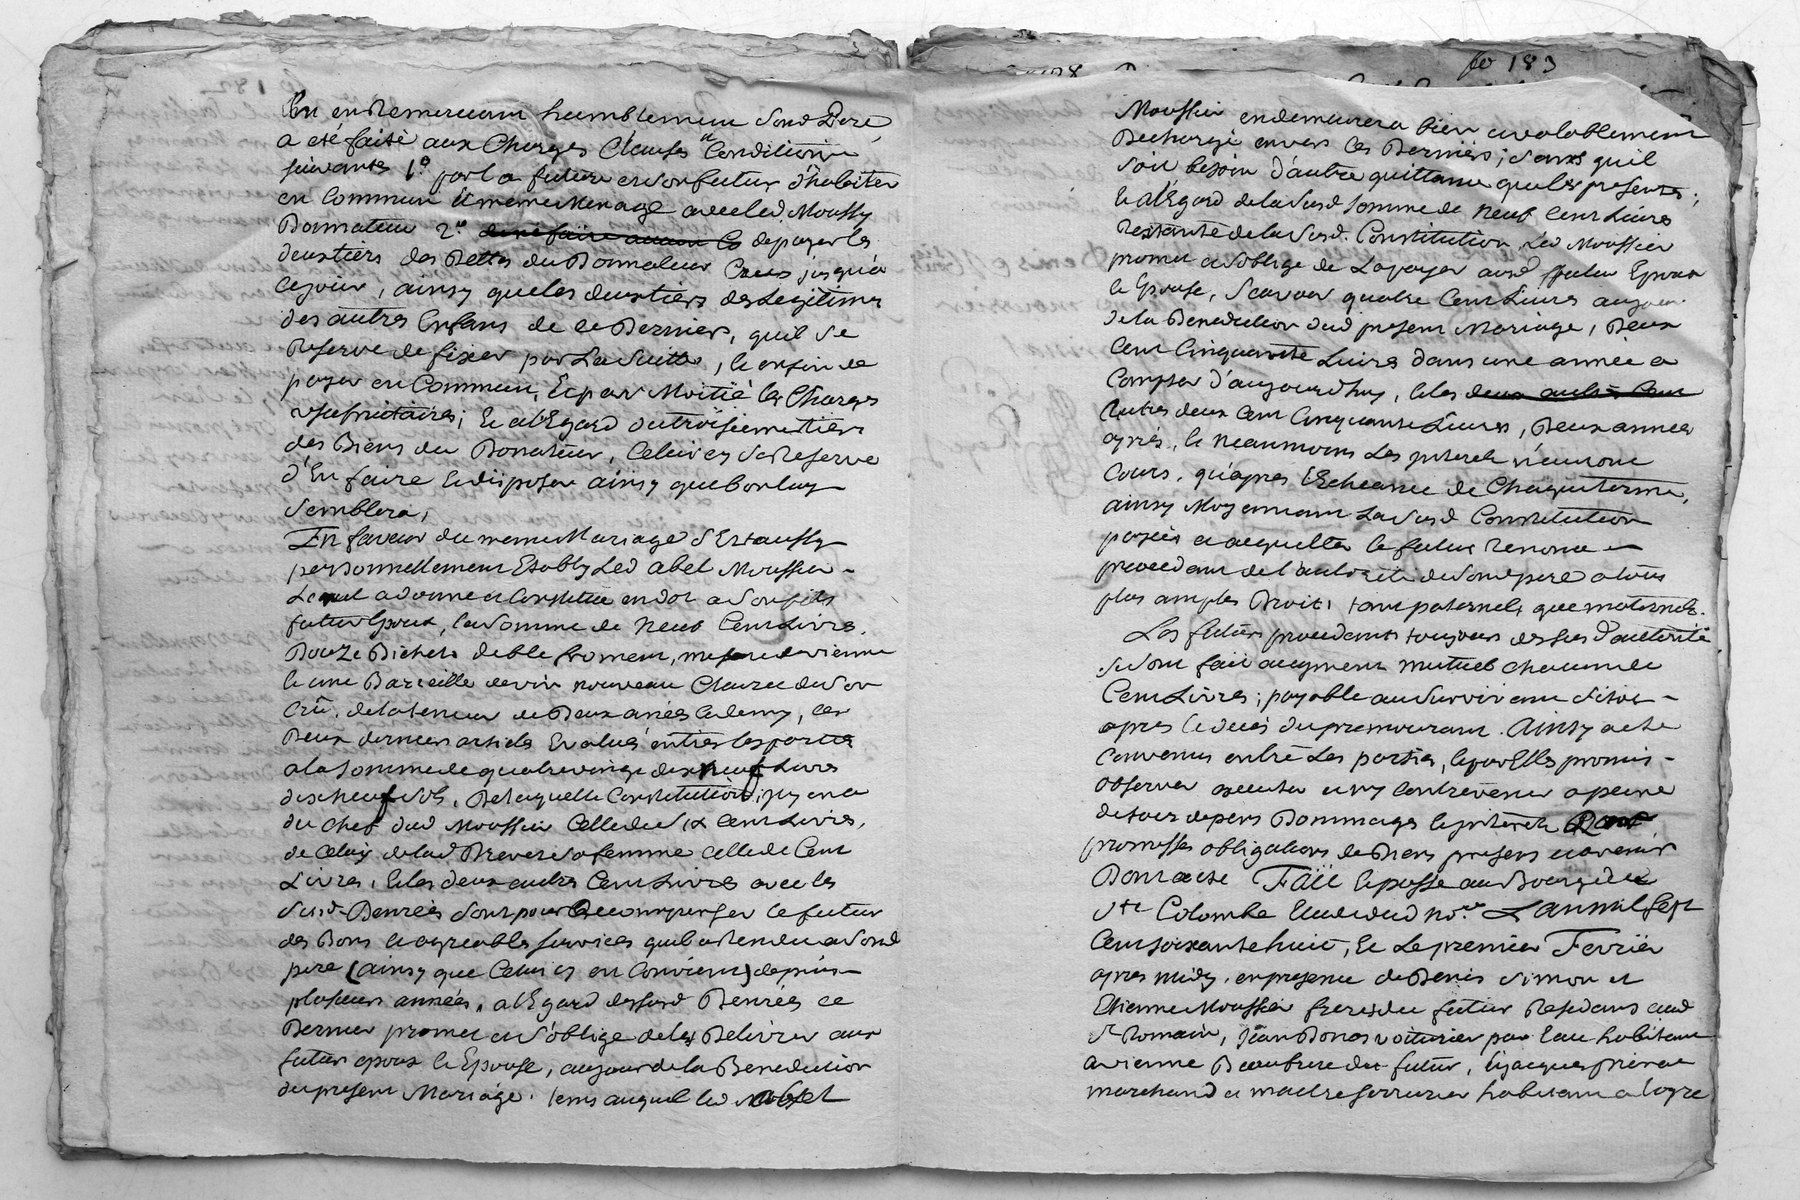 en Remerciant humblement Sond Pere,
a été faite aux Charges Clauses et Conditions
suivantes 1° par la future et son futur d'habiter
en Commun et meme Menage avec led. Moussy
Donnateur 2° de payer les
deux tiers des Dettes du Donnateur Crées jusqu'a
ce jour, ainsy que les deux tiers des Legitimes
des autres Enfans de ce Dernier, qu'il se
Reserve de fixer par La Suitte, et enfin de
payer en Commun, Et par Moitié les Charges
usufruitaires; Et a l'Egard du troisieme tiers
des Biens du Donateur, Celui cy se Reserve
d'En faire et disposer ainsy que bon luy
Semblera,
En faveur du meme Mariage S'Est aussy
personnellement Etably Led abel Moussier
Lequel a donné et Constitué en dot a Son fils
futur Epoux, la Somme de Neuf Cent Livres,
Douze Bichets de blé froment, mesure de vienne
et une Bareille de vin nouveau Clairet de Son
Crû, de la teneur de Deux anées et demy, ces
Deux derniers articles Evalués entre les parties
a la Somme de quatre vingt dix neuf Livres
dix neuf Sols, De laquelle Constitution, il y en a
du Chef dud Moussier Celle de Six Cent Livres,
de Celuy de lad Brevere sa femme celle de Cent
Livres, Et les deux autres Cent Livres avec les
Susd. Denrées Sont pour Recompenser le futur
des Bons et agreables Services qu'il a Rendu a Sond
pere (ainsy que Celui cy en Convient) depuis
plusieurs années, a l'Egard desd Susd Denrées ce
Dernier promet et S'oblige de les Delivrer aux
futur epoux et Epouse, au jour de la Benediction
du present Mariage, tems auquel led abel
fo 183
Moussier en demeurera bien et valablement
Dechargé envers ces Derniers, sans qu'il
soit besoin d'autre quittance que les presentes;
Et a l'Egard de la Susd Somme de Neuf Cent Livres
Restante de la Susd. Constitution, Led Moussier
promet et S'oblige de La payer auxd futur Epoux
et Epouse, Scavoir quatre Cent Livres au jour
de la Benediction dud present Mariage, Deux
Cent Cinquante Livres dans une année a
Compter d'aujourd'huy, Et les deux autres Cent
autres deux Cent Cinquante Livres, Deux années
après, Et neanmoins Les Interets n'auront
Cours, qu'après l'Echeance de Chaque terme,
ainsy Moyennant La Susd Constitution
payée et acquittée le futur Renonce
procedant de l'autorité de Sond pere a tous
plus amples Droits tant paternels que maternels.
Les futurs procedants toujours des susd autorité
se Sont fait augment mutuel chacun de
Cent Livres, payable au Survivant d'iceux
apres le deces du premourant. Ainsy a été
Convenu entre Les parties, lesquelles promis
observer executer et ny Contrevenir a peine
de tous depens Dommages Et Interets
promesses obligations de Biens presens et avenir
Dont acte Fait Et passé au Bourg de
Ste Colombe Etude dud no.re L'an mil Sept
Cent Soixante huit, Et Le premier Fevrier
apres midy, en presence de Denis Simon et
Etienne Moussier freres du futur Residans aud
St Romain, Jean Donas voiturier par Eau habitant
a vienne Beaufrere du futur, Et Jacques
marchand et maitre Serrurier habitant a Loyre